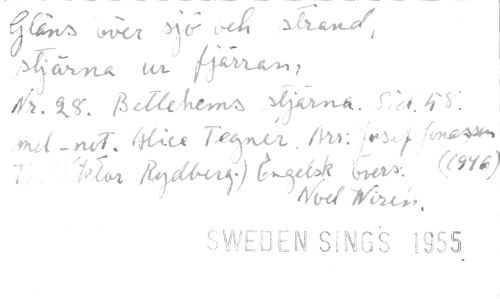 Gläns över sjö och strand,
stjärna ur fjärran,
Nr. 28. Betlehems stjärna. Sid. 58.
mel-not. Alice Tegnér. Arr: Josef Jonasson
Viktor Rydberg.) Engelsk övers. (1946)
Noel Wirén.
SWEDEN SINGS 1955